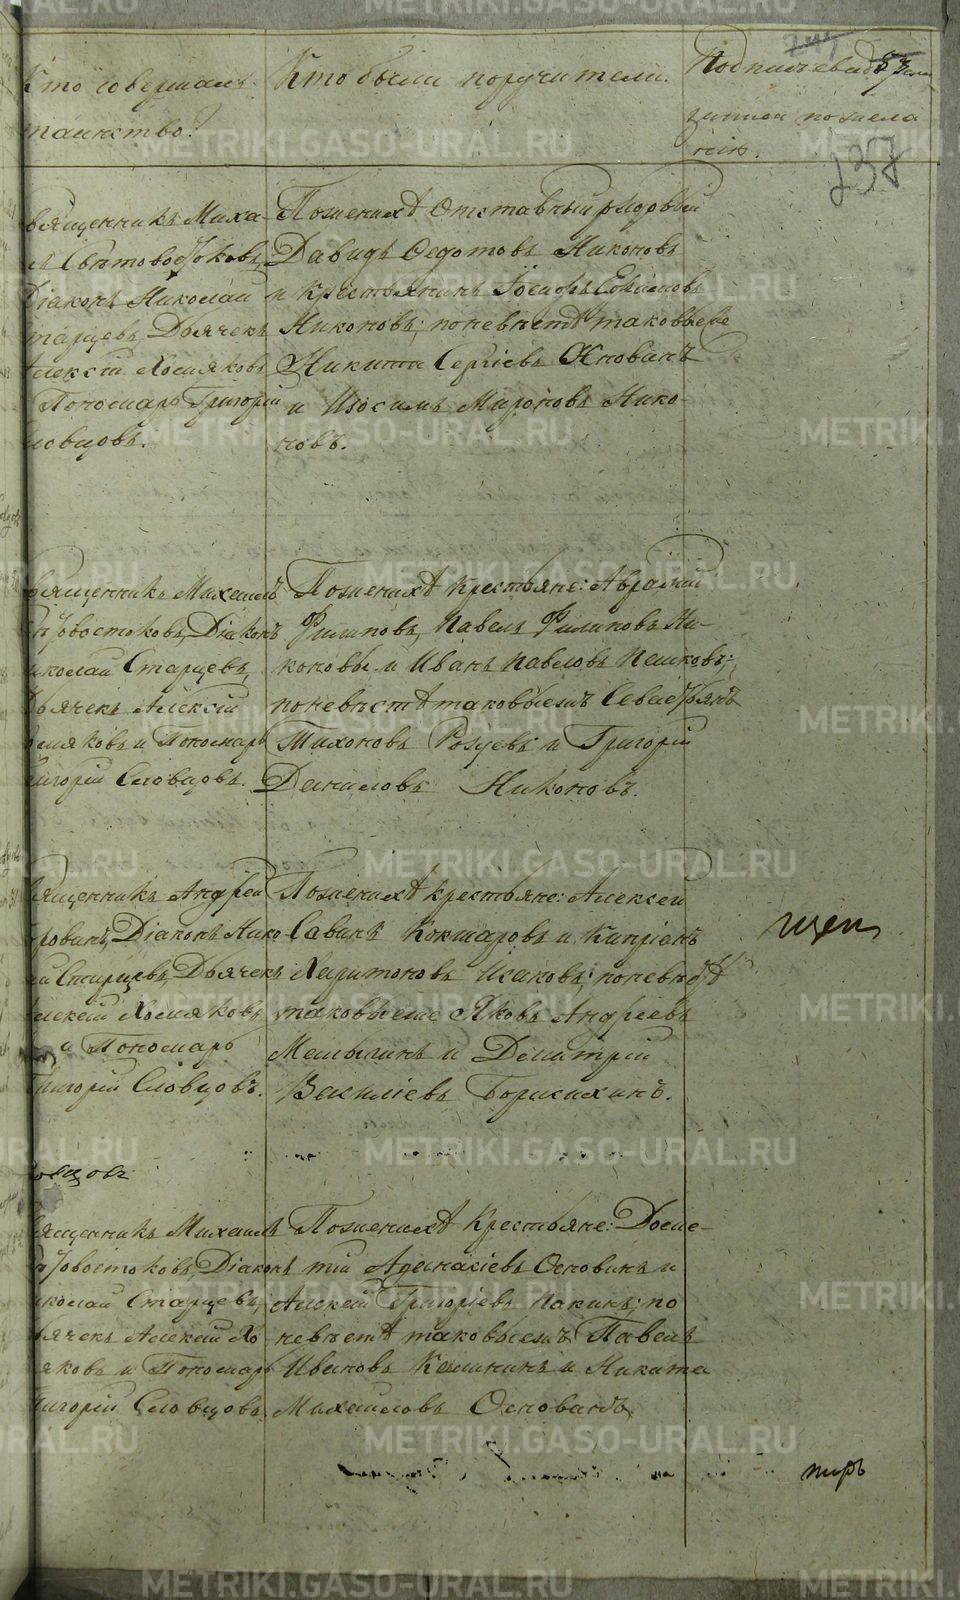 Кто совершалъ
таинство?
Кто были поручители.
Подпись свидѣ
телей
по желанію.
237
вященникъ Миха
ил Свѣтовостоковъ,
Діаконъ Николай
тарцевъ, Дьячекъ
Алексій Хомяковъ
Пономарь Григорій
ловцовъ.
По женихѣ отставный рядовый
Давидъ Федотовъ Никоновъ
и крестьянинъ
Никоновъ; по невѣстѣ таковые
Никита Сергіевъ Основинъ
и Изосимъ Мироновъ Нико-
новъ.
вященникъ Михаилъ
вѣтовостоковъ, Діаконъ
иколай Старцевъ,
ьячекъ Алексій
омяковъ и Пономарь
ригорій Словцовъ.
По женихѣ крестьяне: Аврамій
Филиповъ, Павелъ Филиповъ Ни-
коновы и Иванъ Павловъ Пешковъ;
по невѣстѣ таковыежъ Севастьянъ
Тихоновъ и Григорій
Даниловъ Никоновъ.
вященникъ Андрей
Діаконъ Нико
ай Старцевъ, Дьячекъ
лексій Хомяковъ
и Пономарь
Григорій Словцовъ.
По женихѣ крестьяне: Алексей
Савинъ Кокшаровъ и Кипріянъ
Харитоновъ Исаковъ; по невѣстѣ
таковыеже Яковъ Андреевъ
и Димитрій
Василіевъ Борисихинъ.
щеп
овцовъ
вященникъ Михаилъ
вѣтовостоковъ, Діаконъ
иколай Старцевъ,
ьячекъ Алексій Хо
мяковъ и Пономарь
ригорій Словцовъ.
По женихѣ Крестьяне: Домен-
тій Афанасіевъ Основинъ и
Алексій Григоріевъ; по
невѣстѣ таковыежъ Павелъ
Ивановъ Калининъ и Никита
Михаиловъ Основинъ.
пиръ
METRIKI.GASO-URAL.RU